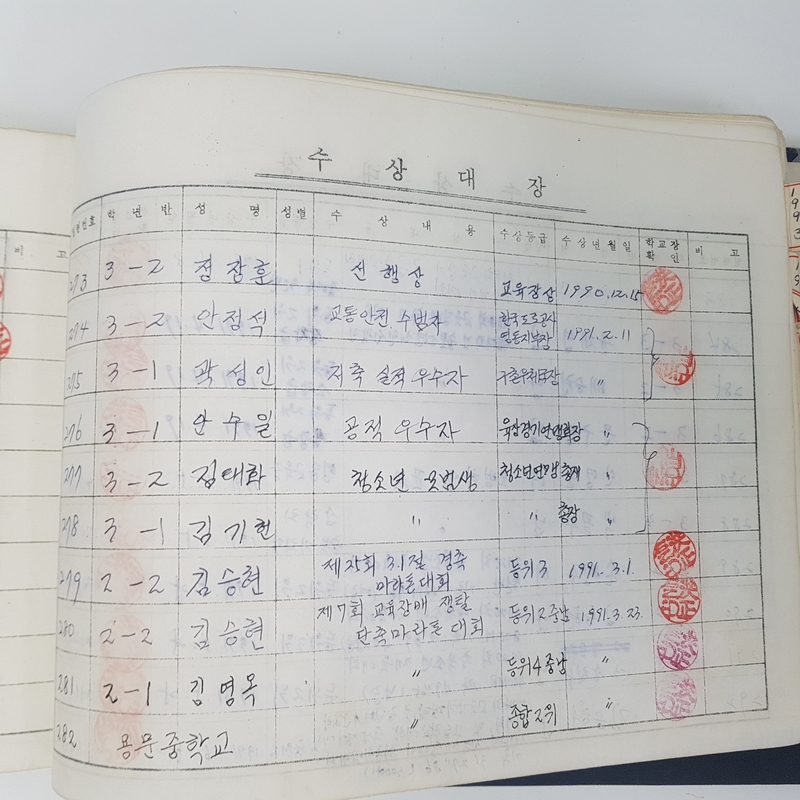 수 상 대 장
학 년 반 성 명 성별 수 상 내 용 수상등급 수상년월일 학교장 확인 비 고
비 고
273 3-2 정장훈 선행상 교육장상 1990.12.15
274 3-2 안정석 교통안전 수범자 한국도로공사 1991.2.11
275 3-1 곽성인 저축 실적 우수자 〃
276 3-1 안수일 공적 우수자 〃
277 3-2 김대화 청소년 모범생 청소년연맹 총재 〃
278 3-1 김기헌 〃 총장 〃
279 2-2 김승현 제25회 3.1절 경축 등위3 1991.3.1.
마라톤대회
280 2-2 김승현 제7회 교육장배 쟁탈 등위2 중남 1991.3.23.
단축마라톤 대회
281 2-1 김명목 〃 등위4 중남 〃
282 용문중학교 〃 종합2위 〃